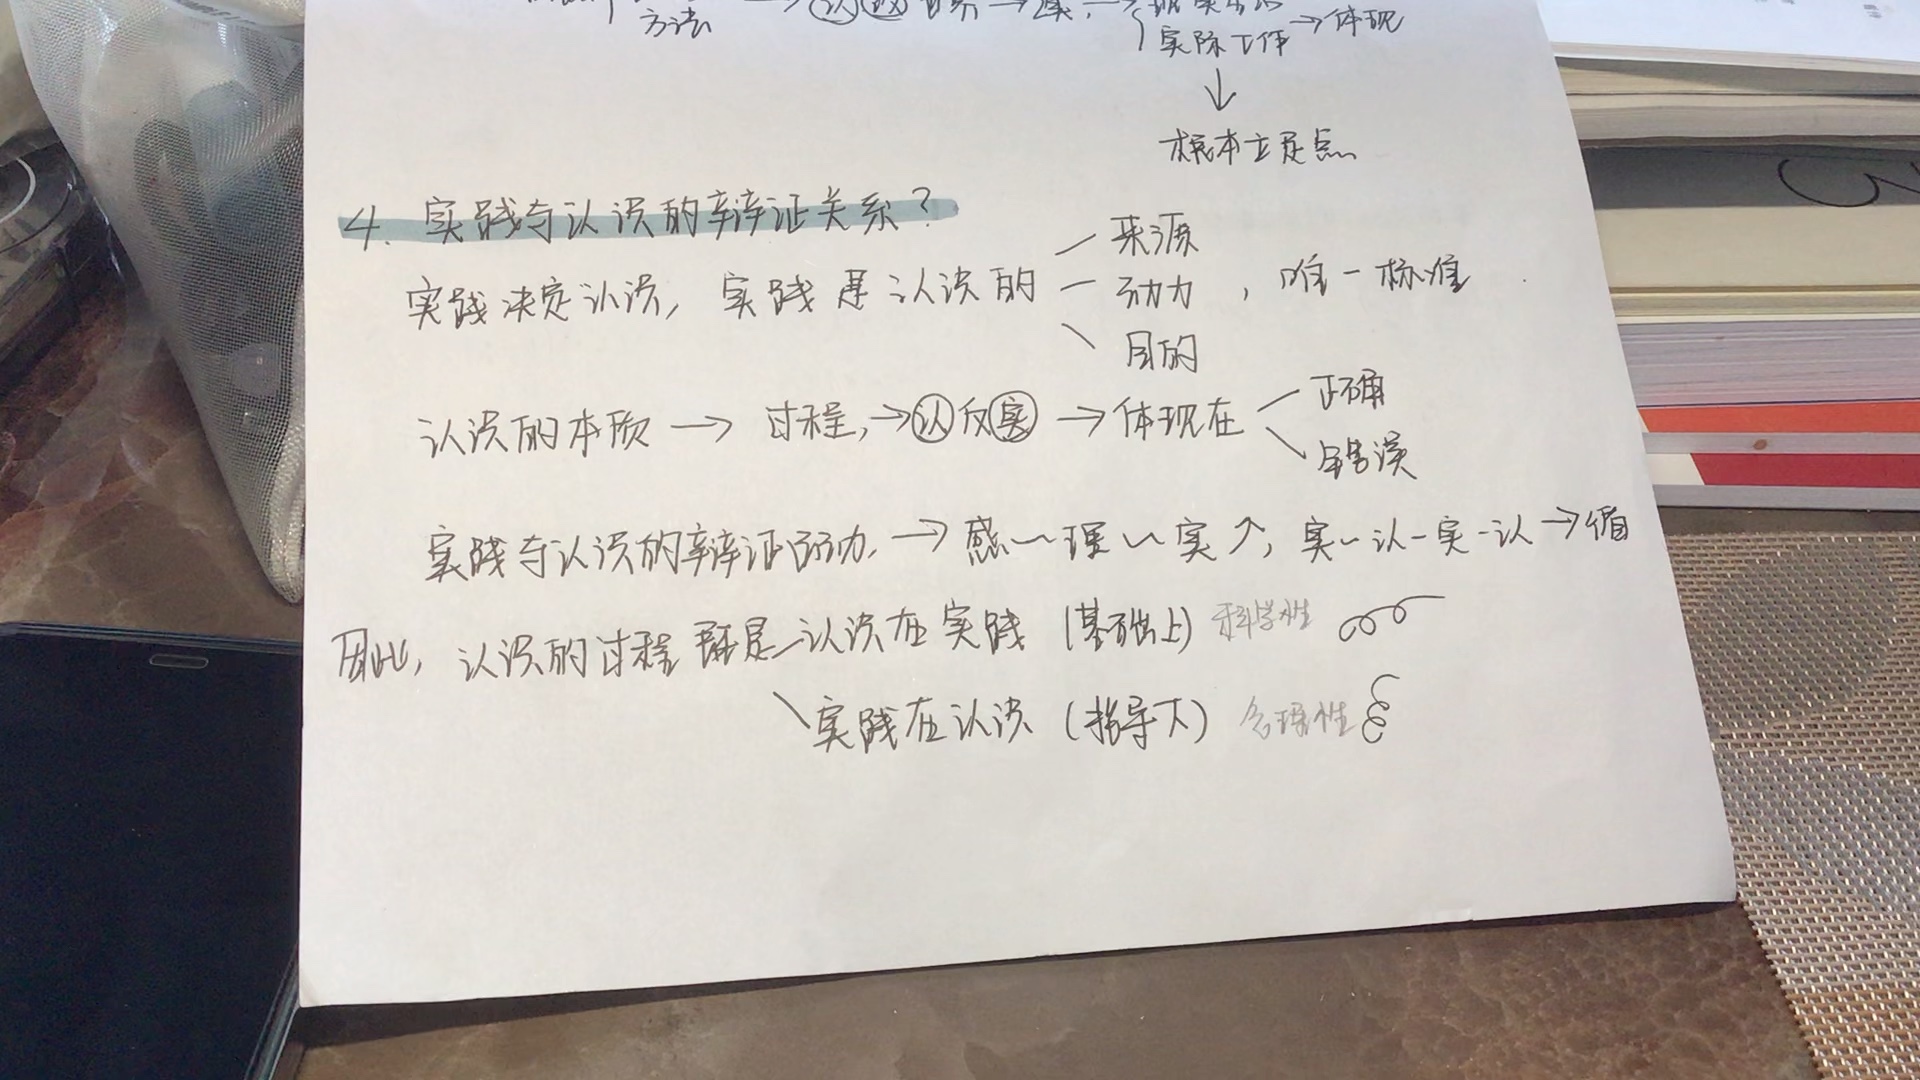 方法
实际工作→体现
↓
根本立足点
4. 实践与认识的辩证关系?
来源
实践决定认识, 实践是认识的 动力, 唯一标准
目的
正确
认识的本质→过程,→认反实→体现在
错误
实践与认识的辩证运动,→感~理~实↑, 实-认-实-认→循
因此, 认识的过程既是 认识在实践(基础上) 科学性
实践在认识(指导下) 合理性